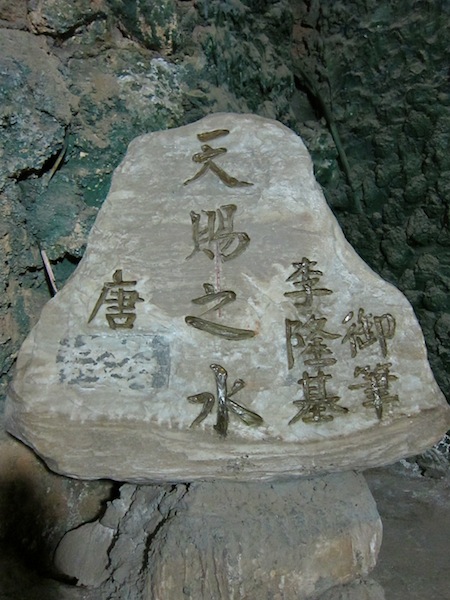 天賜之水
唐
李隆基
御筆